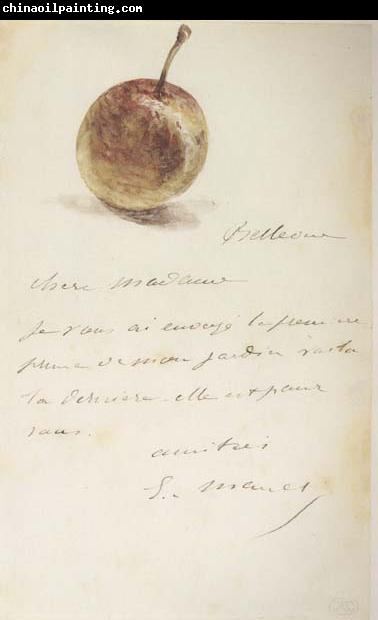 chinaoilpainting.com
Bellevue
chère madame
Je vous ai envoyé la première
prune de mon jardin voila
la dernière. elle est pour
vous.
amitiés
E. Manet